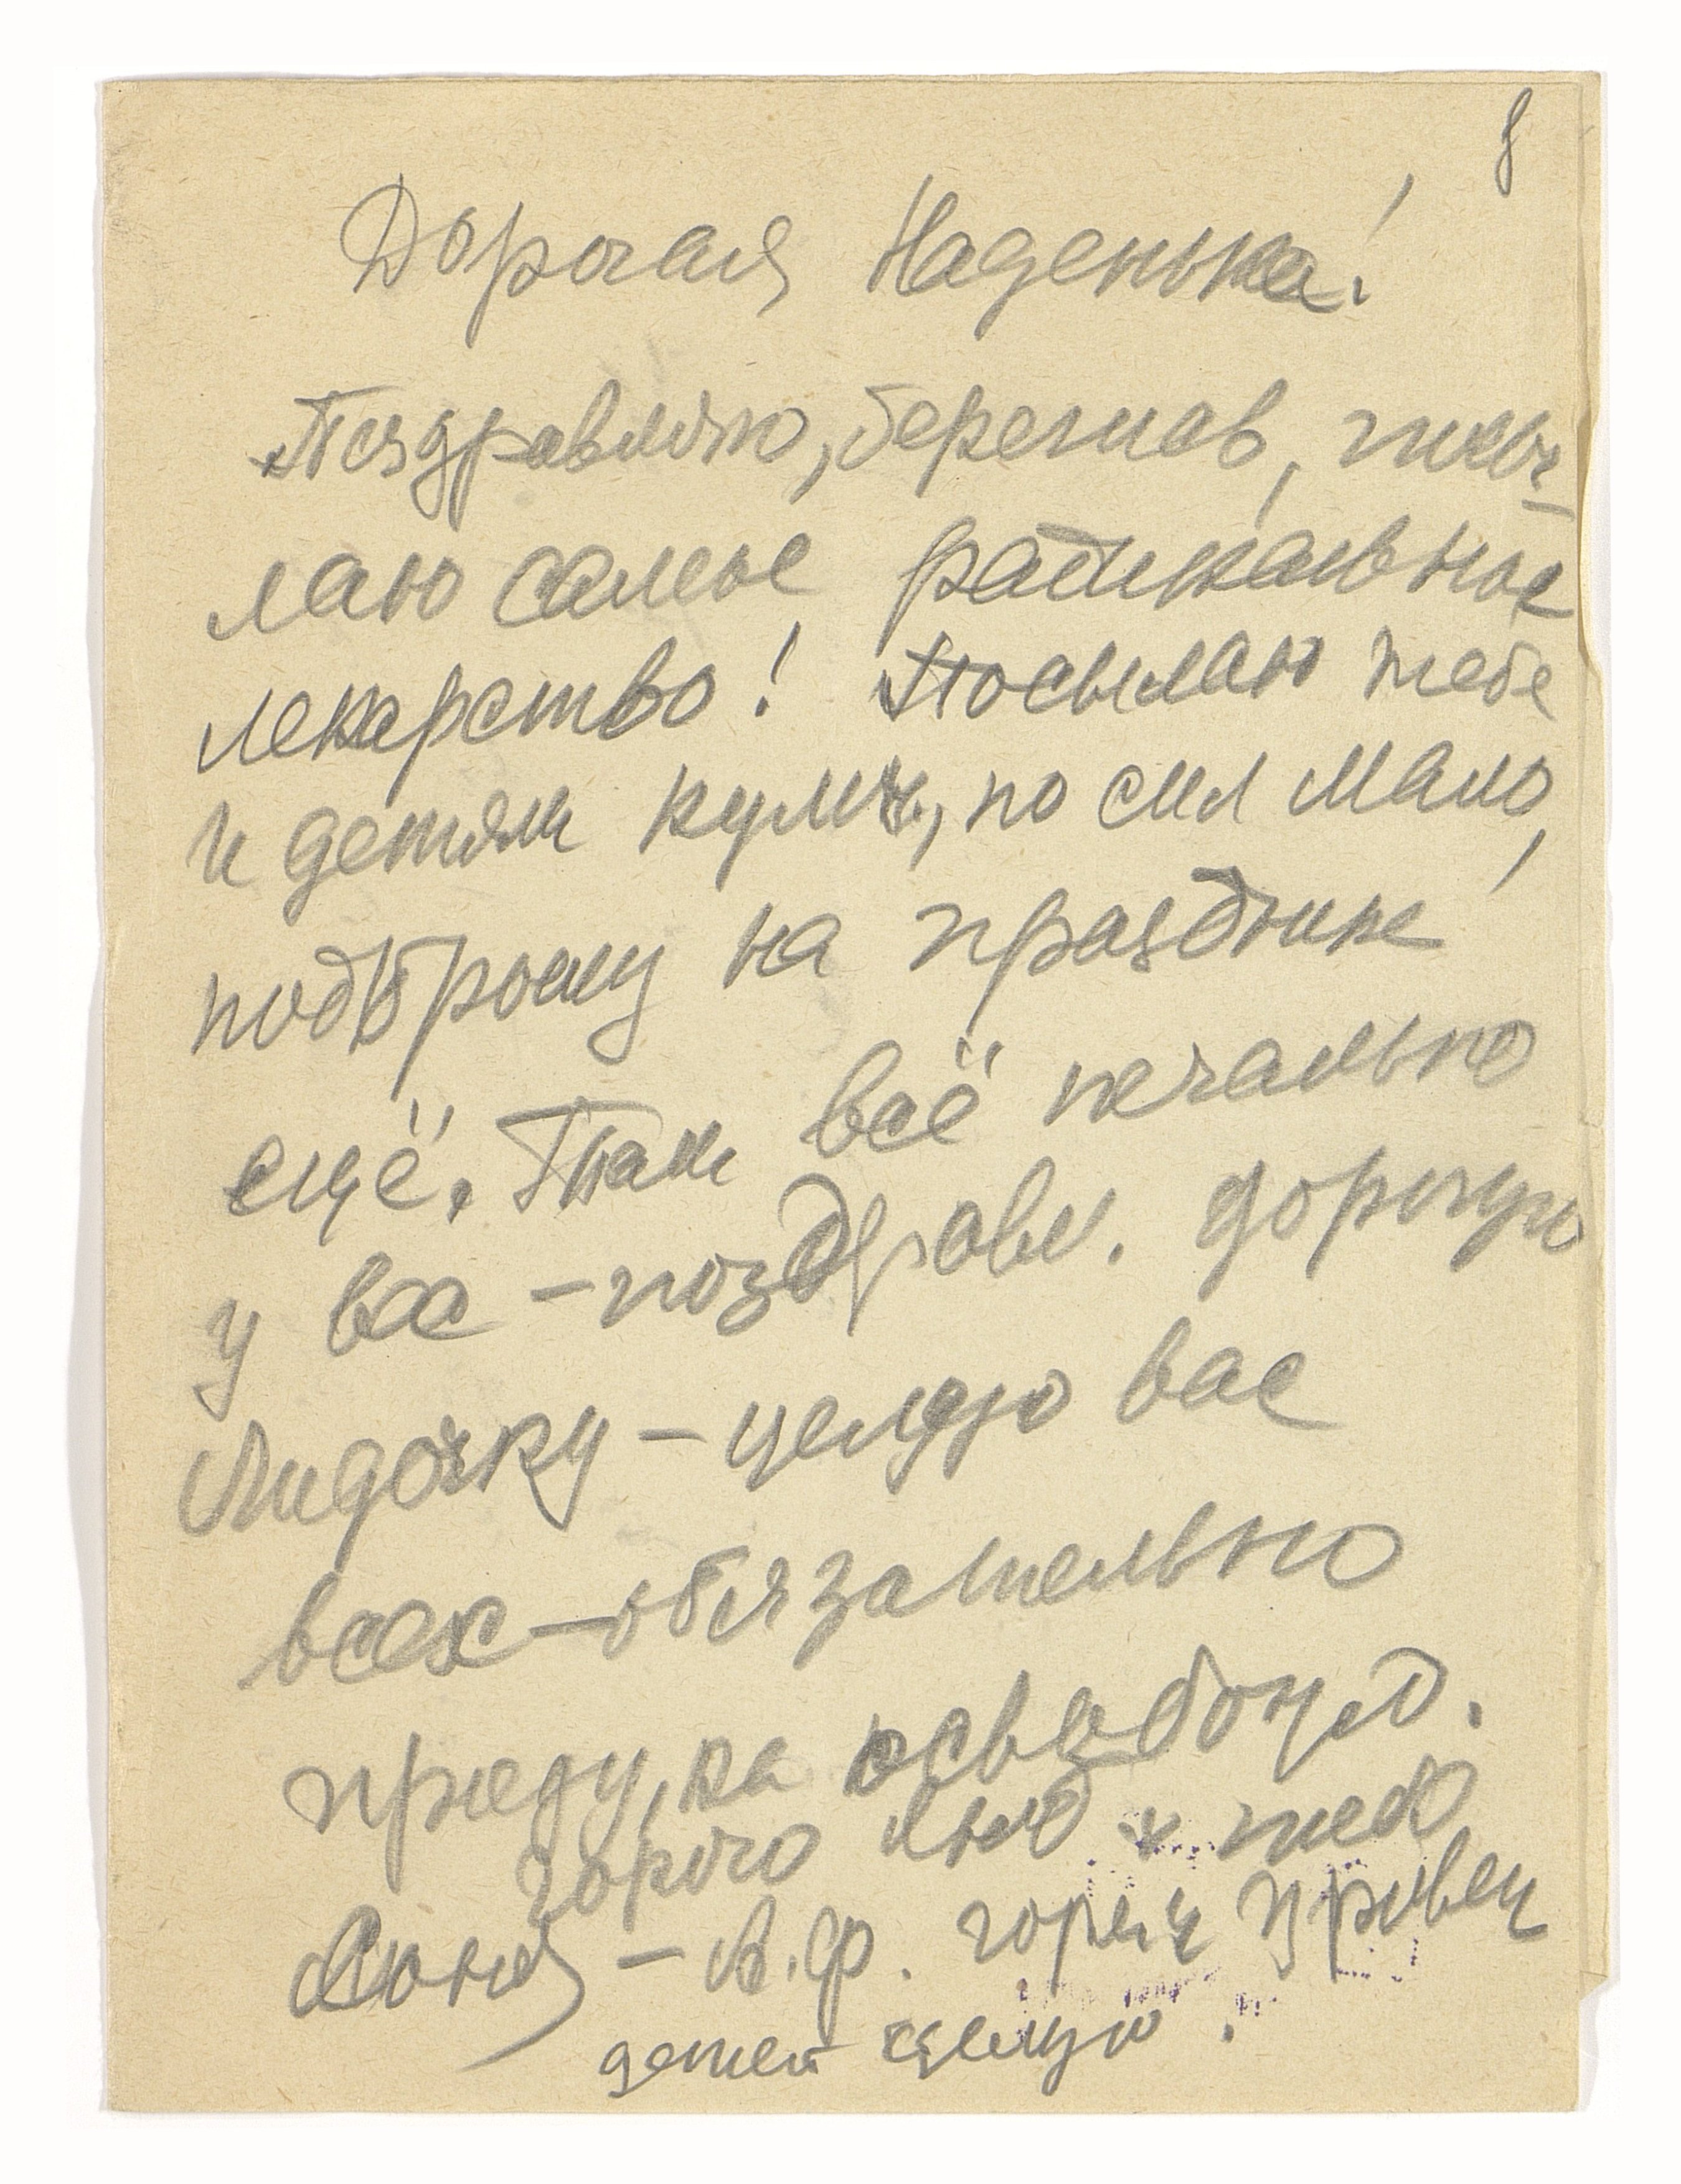 8
Дорогая Наденька!
Поздравляю, берегись,
лаю самые радикальные
лекарство! Посылаю тебе
и детям кулич, но сил мало,
подброшу на празднике
ещё. Так всё печально
у вас – поздравл. дорогую
Лидочку – целую вас
всех – обязательно
приеду, ка освобожд.
горячо люб тебя
Соня – А.Ф. горяч привет
детей целую.